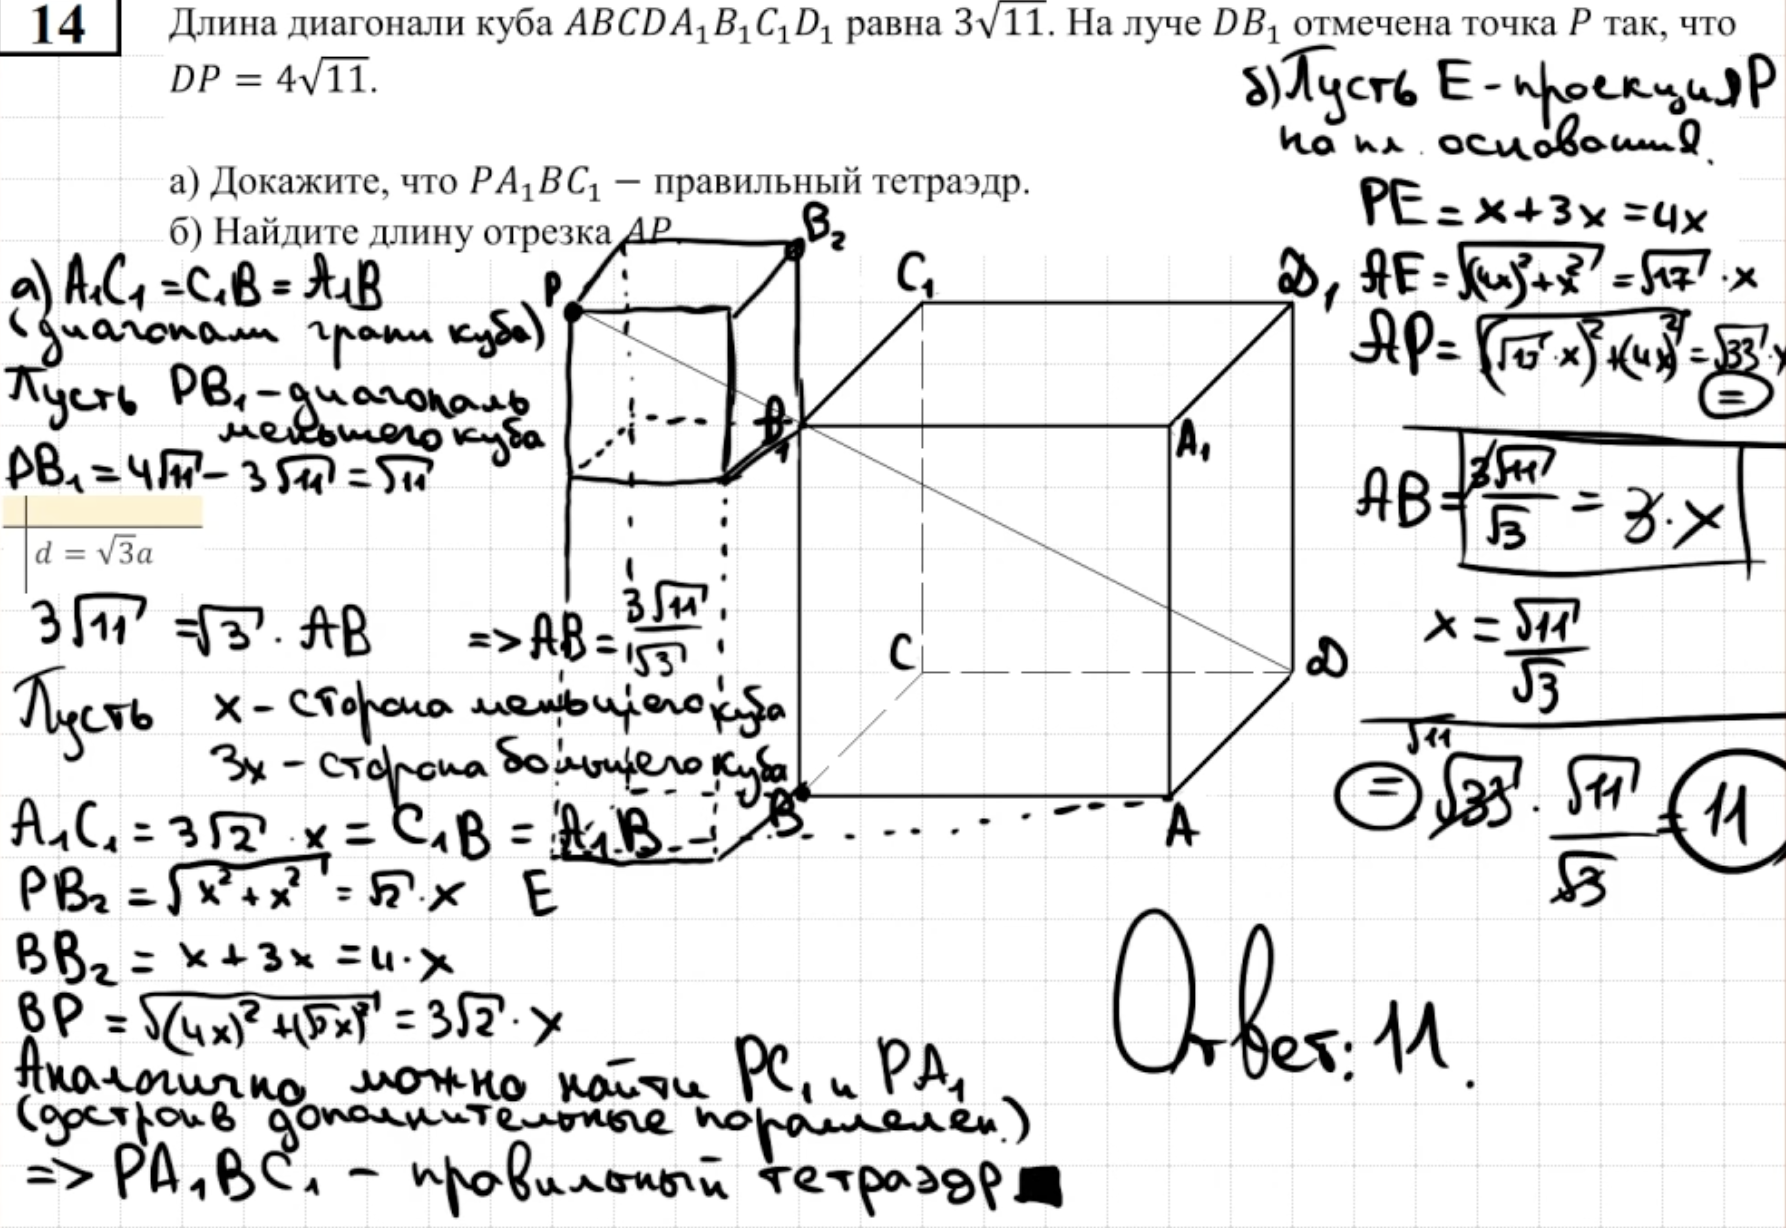 14
Длина диагонали куба ABCDA₁B₁C₁D₁ равна 3√11. На луче DB₁ отмечена точка P так, что
DP = 4√11.
а) Докажите, что PA₁BC₁ − правильный тетраэдр.
б) Найдите длину отрезка AP.
а) A₁C₁ = C₁B = A₁B
(диагонали грани куба)
Пусть PB₁ - диагональ
меньшего куба
PB₁ = 4√11 - 3√11 = √11
d = √3a
3√11 = √3 · AB => AB = 3√11/√3
Пусть x - сторона меньшего куба
3x - сторона большего куба
A₁C₁ = 3√2 · x = C₁B = A₁B
PB₂ = √(x² + x²) = √2 · x
BB₂ = x + 3x = 4 · x
BP = √((4x)² + (√2x)²) = 3√2 · x
Аналогично можно найти PC₁ и PA₁
(достроив дополнительные параллелеп.)
=> PA₁BC₁ - правильный тетраэдр ■
P
B₂
C₁
D₁
B₁
A₁
C
D
B
A
E
б) Пусть E - проекция P
на пл. основания.
PE = x + 3x = 4x
AE = √((4x)² + x²) = √17 · x
AP = √((√17 · x)² + (4x)²) = √33 · x
=
AB = 3√11/√3 = 3 · x
x = √11/√3
= √33 · √11/√3 = 11
√11
Ответ: 11.